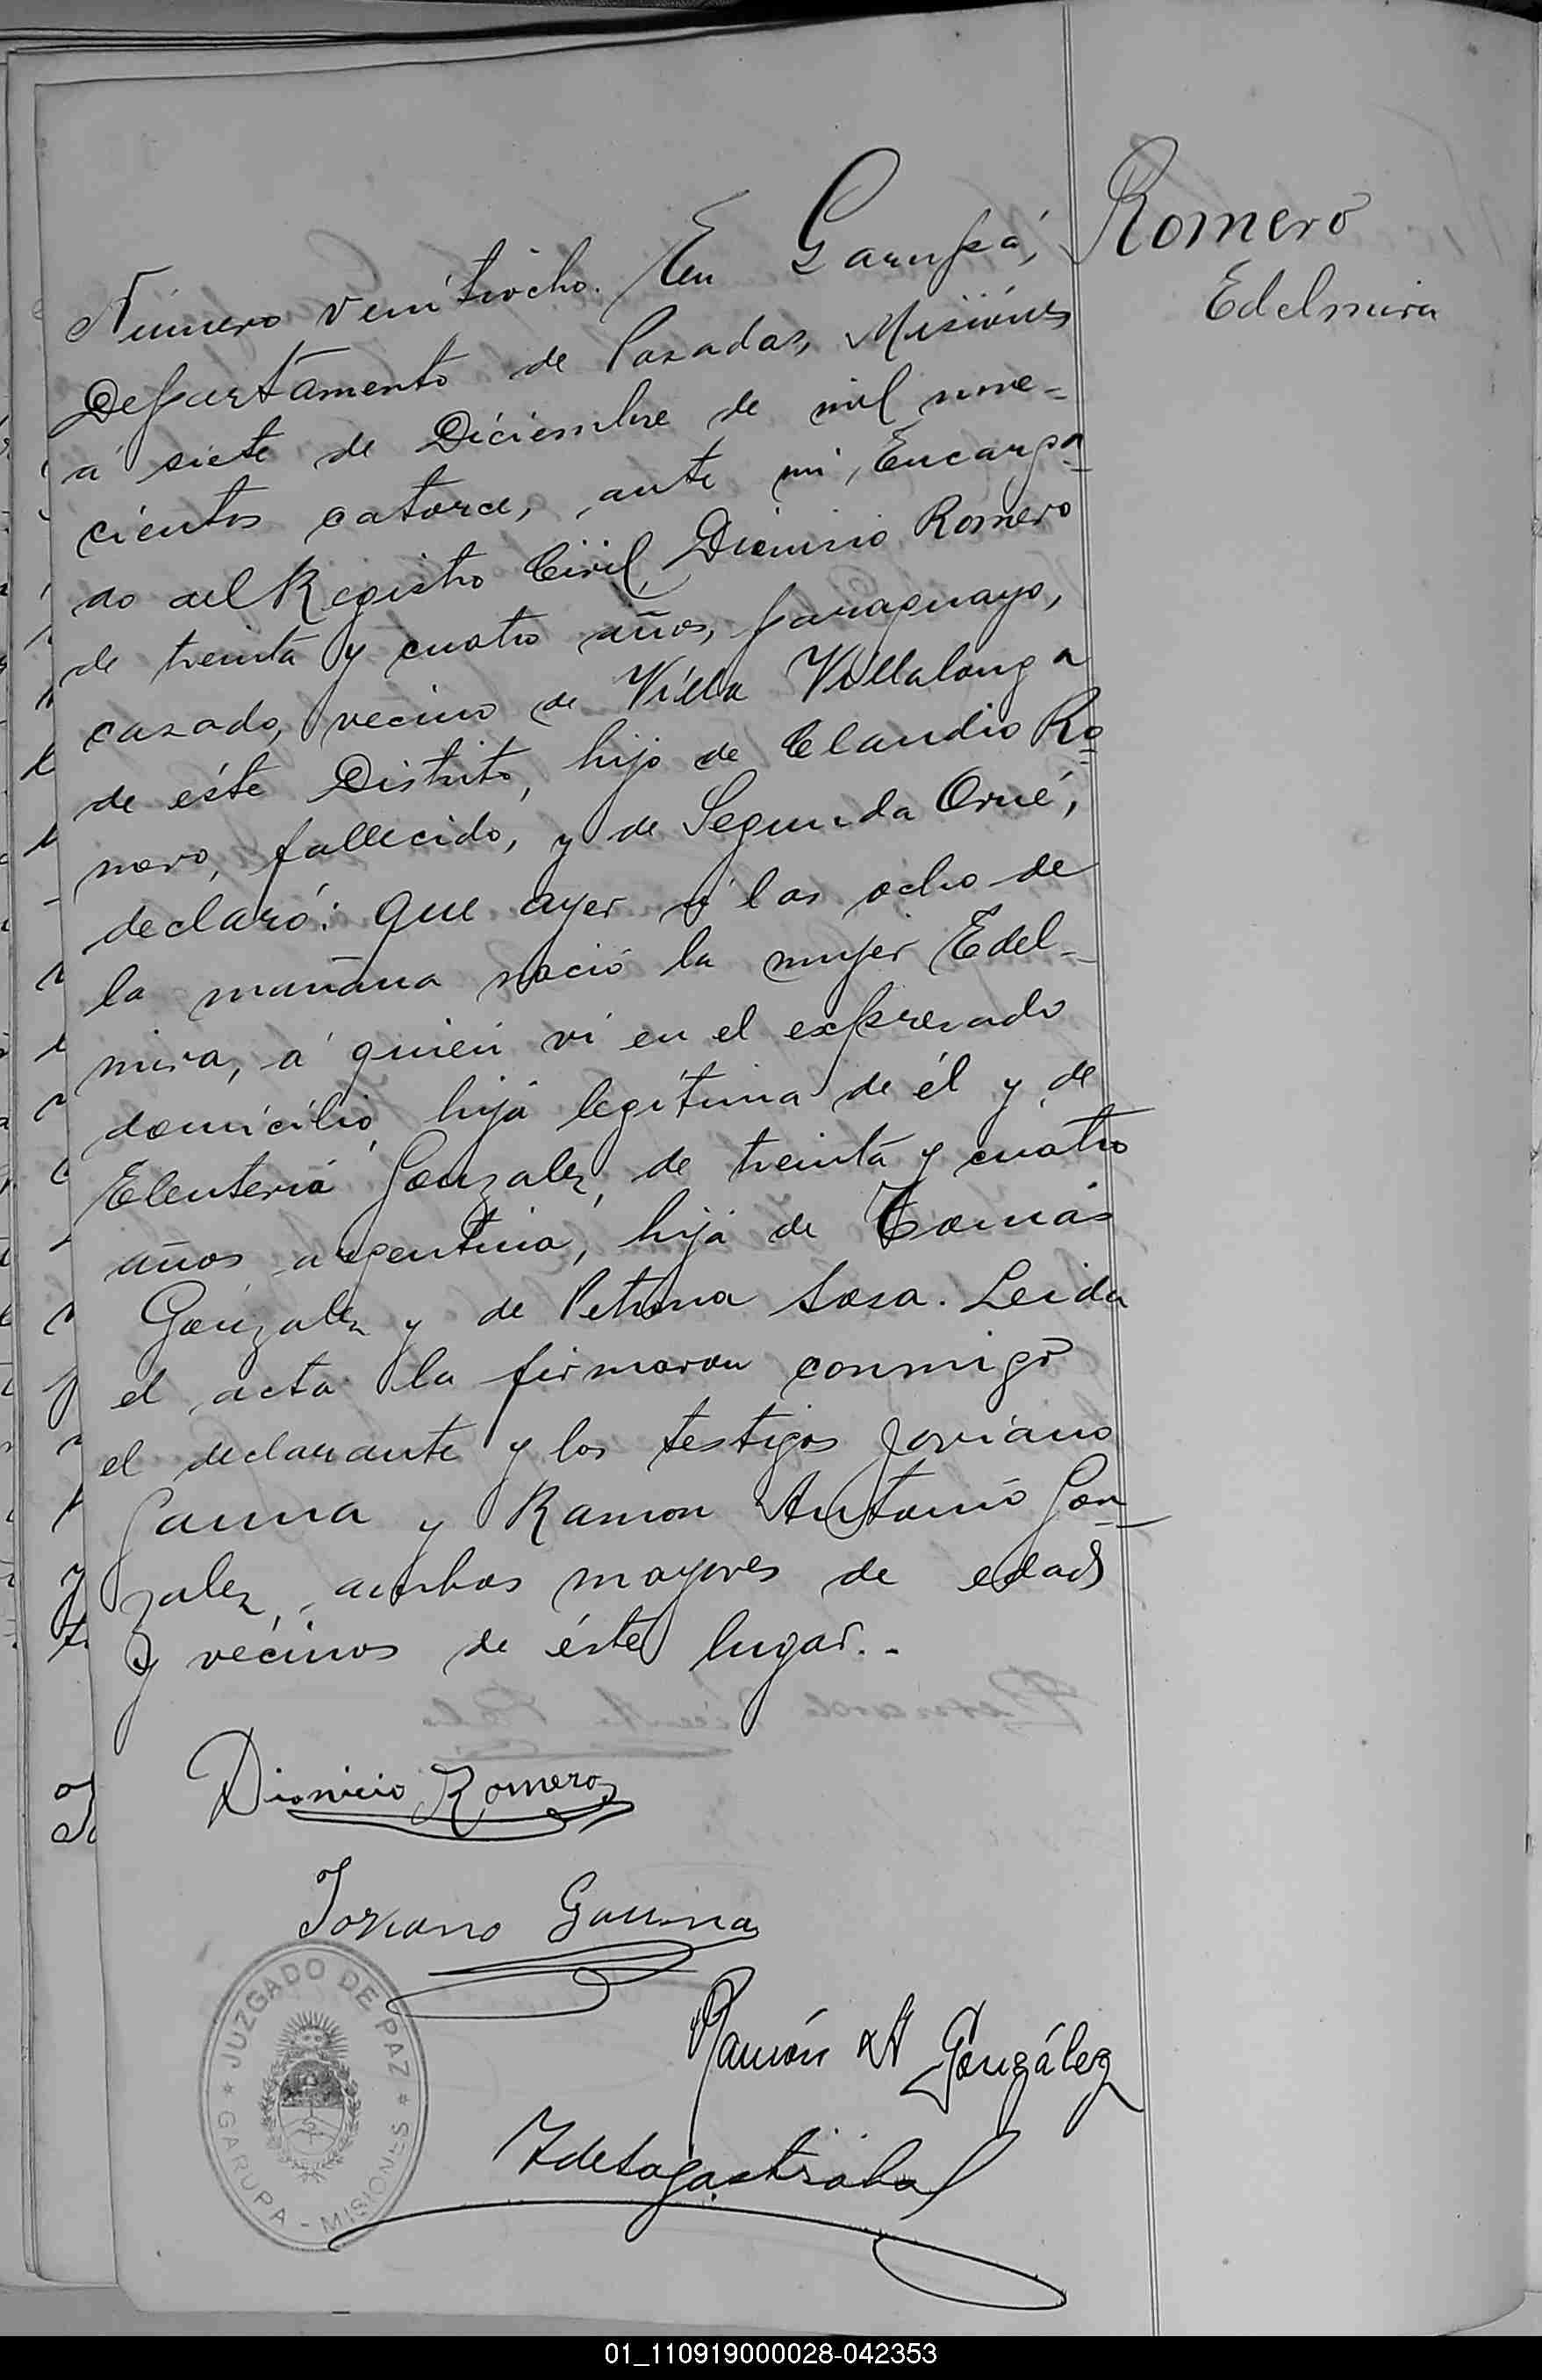 Romero
Edelmira
Número veintiocho. En Garupá,
Departamento de Posadas, Misiónes
á siete de Diciembre de mil nove-
cientos catorce, ante mi, Encarga-
do del Registro Civil, Dionisio Romero
de treinta y cuatro años, paraguayo,
casado, vecino de Villa Villalonga
de éste Distrito, hijo de Claudio Ro-
mero, fallecido, y de Segunda Orué,
declaró: Que ayer á las ocho de
la mañana nació la mujer Edel-
mira, á quien vi en el expresado
domicilio, hija legítima de él y de
Eleuteria Gonzalez, de treinta y cuatro
años argentina, hija de Tomás
Gonzalez y de Petrona Sosa. Leida
el acta la firmaron conmigo
el declarante y los testigos Joviano
Gauna y Ramon Antonio Gon-
zalez, ambos mayores de edad
y vecinos de éste lugar.-
Dionicio Romero
Joviano Gauna
Ramón A González
JUZGADO DE PAZ
GARUPA - MISIONES
01_110919000028-042353